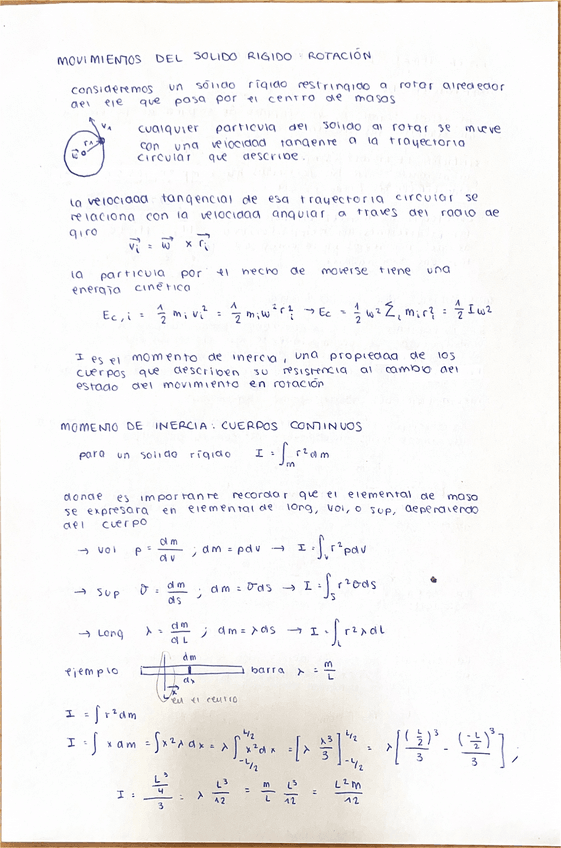 MOVIMIENTOS DEL SOLIDO RIGIDO : ROTACIÓN
consideremos un sólido rígido restringido a rotar alrededor
del eje que pasa por el centro de masas
v₁
r₁
cualquier particula del solido al rotar se mueve
con una velocidad tangente a la trayectoria
circular que describe.
la velocidad tangencial de esa trayectoria circular se
relaciona con la velocidad angular a traves del radio de
giro
v⃗ᵢ = w⃗ × r⃗ᵢ
la particula por el hecho de moverse tiene una
energía cinética
Ec,i = 1/2 mᵢ vᵢ² = 1/2 mᵢ w² rᵢ² → Ec = 1/2 w² Σᵢ mᵢ rᵢ² = 1/2 I w²
I es el momento de inercia, una propiedad de los
cuerpos que describen su resistencia al cambio del
estado del movimiento en rotación
MOMENTO DE INERCIA : CUERPOS CONTINUOS
para un solido rígido I = ∫ₘ r² dm
donde es importante recordar que el elemental de masa
se expresara en elemental de long, vol, o sup, dependiendo
del cuerpo
→ vol ρ = dm/dv ; dm = ρdv → I = ∫ᵥ r² ρdv
→ sup σ = dm/ds ; dm = σds → I = ∫ₛ r² σds
→ Long λ = dm/dL ; dm = λds → I = ∫_L r² λ dL
dm
ejemplo barra λ = m/L
dx
x⃗
en el centro
I = ∫ r² dm
I = ∫ x dm = ∫ x² λ dx = λ ∫_{-L/2}^{L/2} x² dx = [λ x³/3]_{-L/2}^{L/2} = λ [ (L/2)³/3 - (-L/2)³/3 ] ;
I = (L³/4)/3 = λ L³/12 = m/L L³/12 = L²m/12